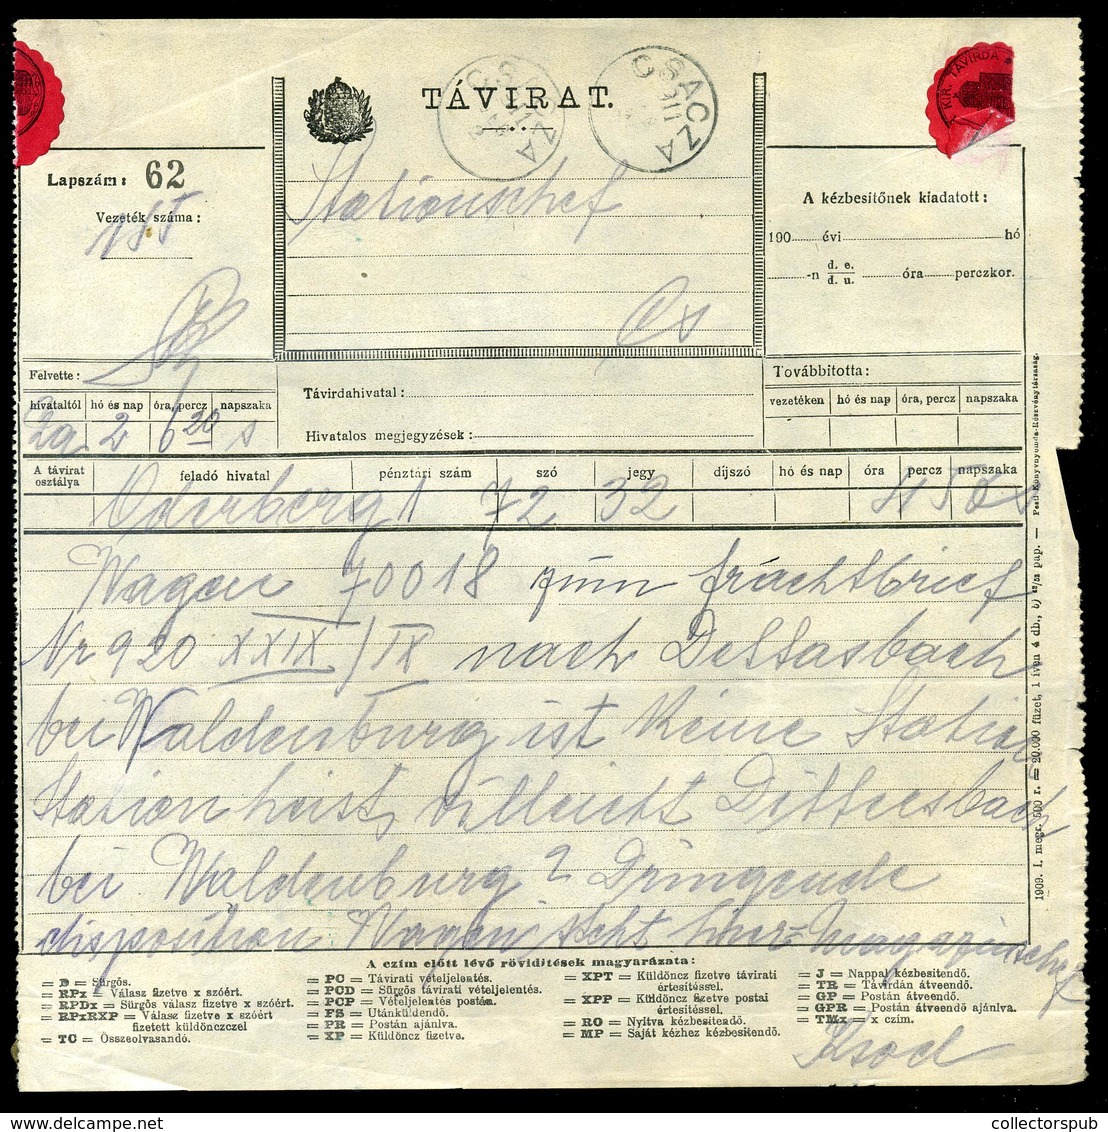 TÁVIRAT.
CSACZA
CSACZA
KIR. TÁVIRDA
Lapszám: 62
Vezeték száma:
155
Stationschef
Cs
A kézbesitőnek kiadatott:
190 évi hó
-n d. e. d. u. óra perczkor.
Felvette:
hivataltól hó és nap óra, percz napszaka
2a 2 6 20 s
Távirdahivatal:
Hivatalos megjegyzések:
Továbbitotta:
vezetéken hó és nap óra, percz napszaka
A távirat osztálya feladó hivatal pénztári szám szó jegy díjszó hó és nap óra percz napszaka
Oderberg 1 72 32
Wagen 70018 zum frachtbrief
Nr 920 XXIX/IX nach Dettasbach
bei Waldenburg ist Keine Station
Station heist villeicht Dittersbach
bei Waldenburg ? Dringende
disposition Wagen steht hier magazinschef
Ksod
A czím előtt lévő röviditések magyarázata:
= D = Sürgős.
= RPx = Válasz fizetve x szóért.
= RPDx = Sürgős válasz fizetve x szóért.
= RPxRXP = Válasz fizetve x szóért
fizetett küldönczczel
= TC = Összeolvasandó.
= PC = Távirati vételjelentés.
= PCD = Sürgős távirati vételjelentés.
= PCP = Vételjelentés postám.
= FS = Utánküldendő.
= PR = Postán ajánlva.
= XP = Küldöncz fizetve.
= XPT = Küldöncz fizetve távirati
értesitéssel.
= XPP = Küldöncz fizetve postai
értesitéssel.
= RO = Nyitva kézbesitendő.
= MP = Saját kézhez kézbesitendő.
= J = Nappal kézbesitendő.
= TR = Távirdán átveendő.
= GP = Postán átveendő.
= GPR = Postán átveendő ajánlva.
= TMx = x czím.
1909. I. megr. 500 r. = 20.000 füzet, 1 íven 4 db., b) 42/53 pap. — Pesti Könyvnyomda-Részvénytársaság.
collectorspub